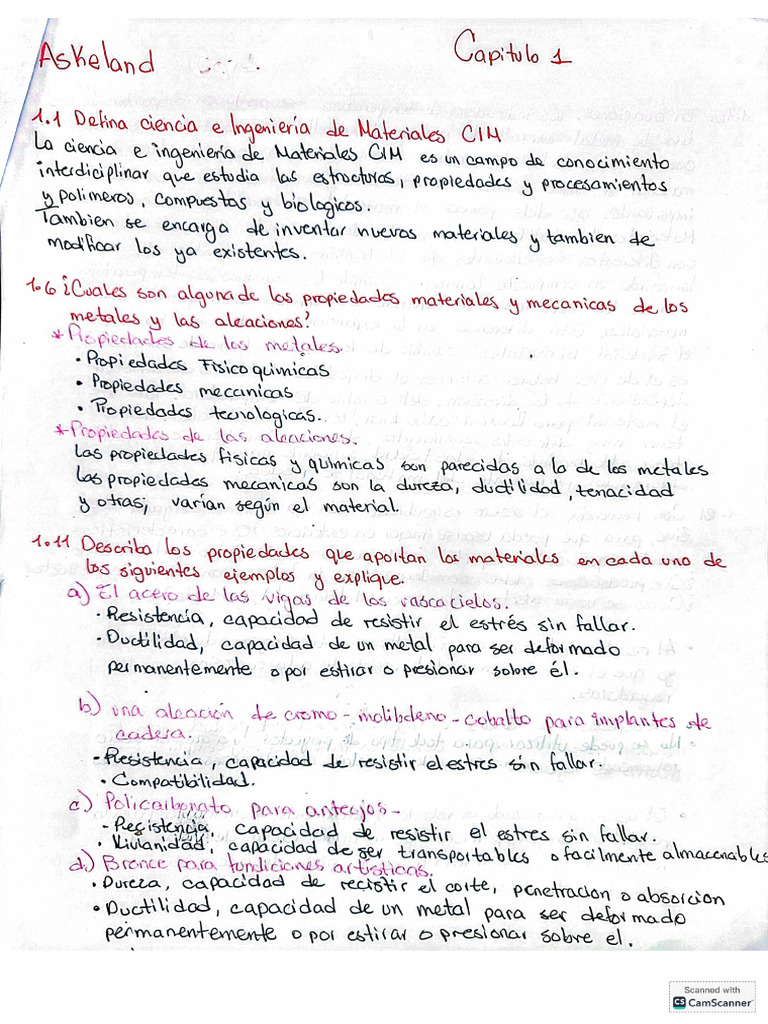 Askeland
Capitulo 1
1.1 Defina ciencia e Ingeniería de Materiales CIM
La ciencia e ingeniería de Materiales CIM es un campo de conocimiento
interdiciplinar que estudia las estructuras, propiedades y procesamientos
y polimeros, compuestas y biologicos.
Tambien se encarga de inventar nuevos materiales y tambien de
modificar los ya existentes.
1.6 ¿Cuales son alguna de las propiedades materiales y mecanicas de los
metales y las aleaciones?
* Propiedades de los metales.
• Propiedades Fisicoquimicas
• Propiedades mecanicas
• Propiedades tecnologicas.
* Propiedades de las aleaciones.
Las propiedades fisicas y quimicas son parecidas a la de los metales
Las propiedades mecanicas son la dureza, ductilidad, tenacidad
y otras; varían según el material.
1.11 Describa los propiedades que aportan los materiales en cada uno de
los siguientes ejemplos y explique.
a) El acero de las vigas de los rascacielos.
• Resistencía, capacidad de resistir el estrés sin fallar.
• Ductilidad, capacidad de un metal para ser deformado
permanentemente o por estirar o presionar sobre él.
b) una aleación de cromo-molibdeno-cobalto para implantes de
cadera.
• Resistencia, capacidad de resistir el estres sin fallar.
• Compatibilidad.
c) Policarbonato para anteojos-
- Resistencia, capacidad de resistir el estres sin fallar.
• Livianidad, capacidad de ser transportables o facilmente almacenables
d.) Bronce para fundiciones artisticas.
• Dureza, capacidad de recistir el corte, penetracion o absorcion
• Ductilidad, capacidad de un metal para ser deformado
permanentemente o por estirar o presionar sobre el.
Scanned with
CS CamScanner